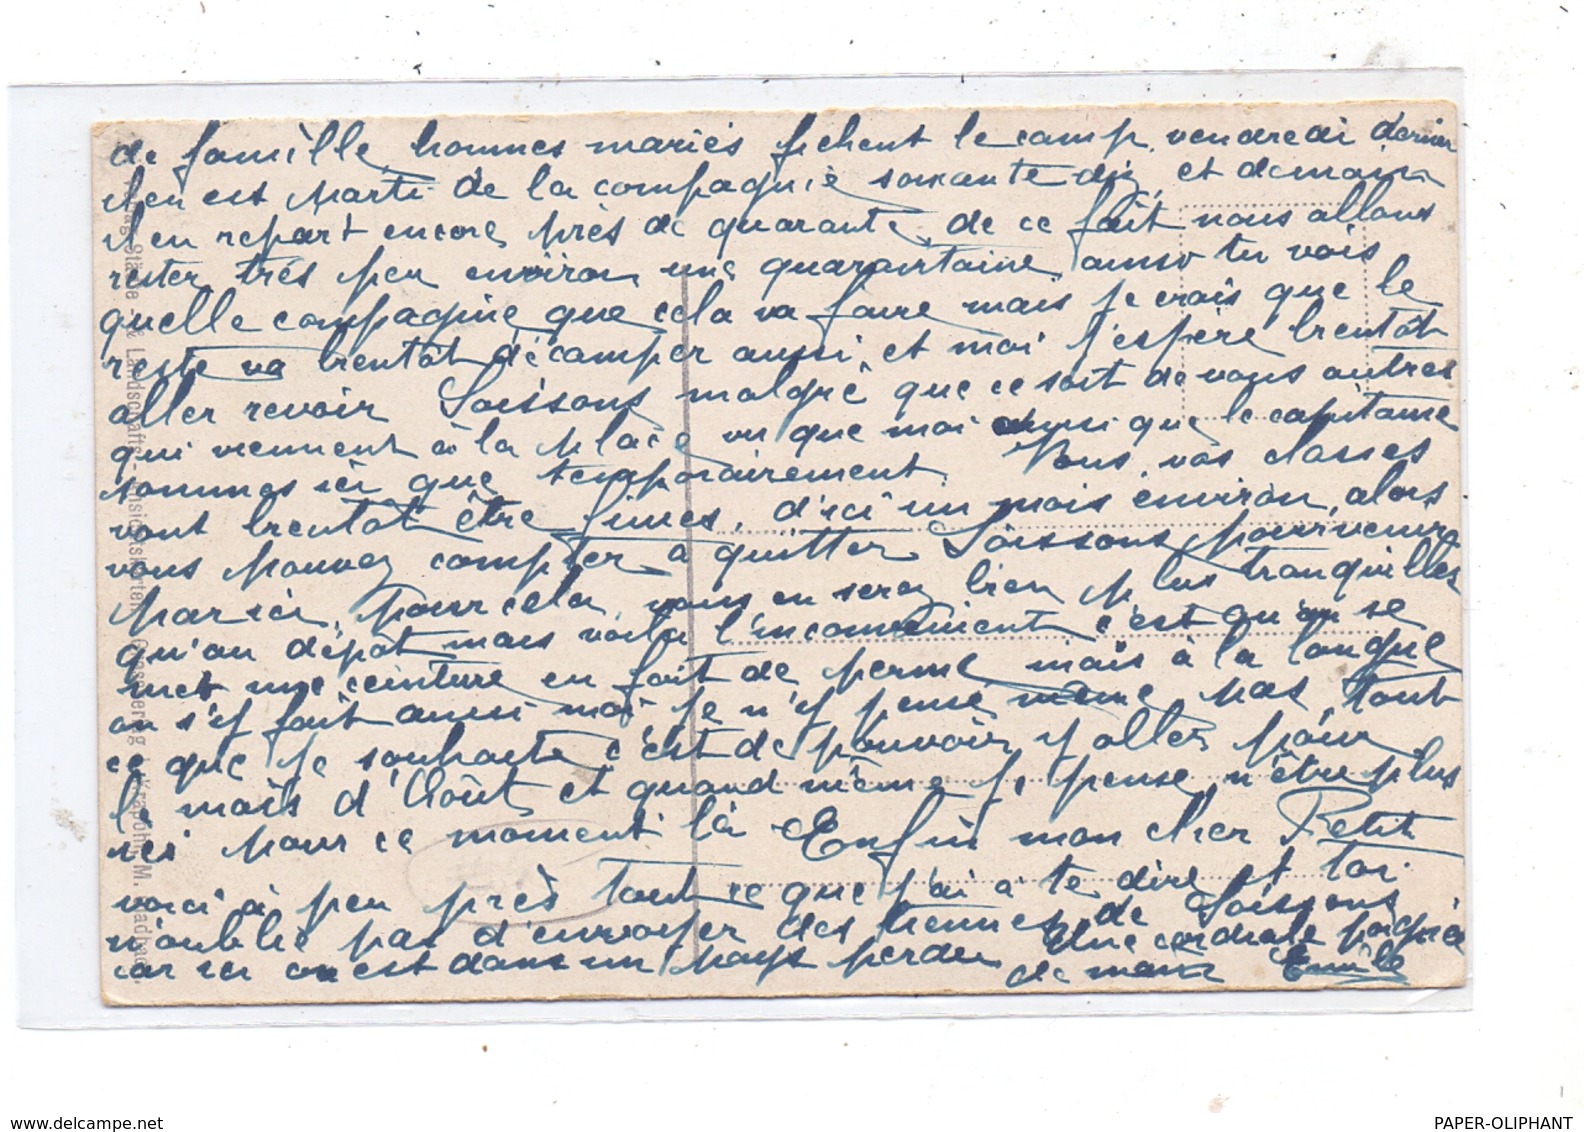 de famille, hommes mariés fichent le camp, vendredi dernier
il en est parti de la compagnie soixante dix, et demain
il en repart encore près de quarante, de ce fait nous allons
rester très peu environ une quarantaine ainsi tu vois
quelle compagnie que cela va faire mais je crois que le
reste va bientôt décamper aussi, et moi j'espère bientôt
aller revoir Soissons malgré que ce soit de vous autres
qui viennent à la place vu que moi ainsi que le capitaine
sommes ici que temporairement. Vous, vos classes
vont bientôt être finies, d'ici un mois environ, alors
vous pouvez compter à quitter Soissons pour venir
par ici, pour cela, vous en serez bien plus tranquilles
qu'au dépôt mais voilà l'inconvénient c'est qu'on se
met une ceinture en fait de perme mais à la longue
on s'y fait aussi moi je n'y pense même pas, tout
ce que je souhaite c'est de pouvoir y aller pour
le mois d'Août, et quand même je pense n'être plus
ici pour ce moment là. Enfin mon cher Petit
voici à peu près tout ce que j'ai à te dire et toi
n'oublie pas d'envoyer des tiennes de Soissons
car ici on est dans un pays perdu Une cordiale poignée
de main Emile
www.delcampe.net
PAPER-OLIPHANT